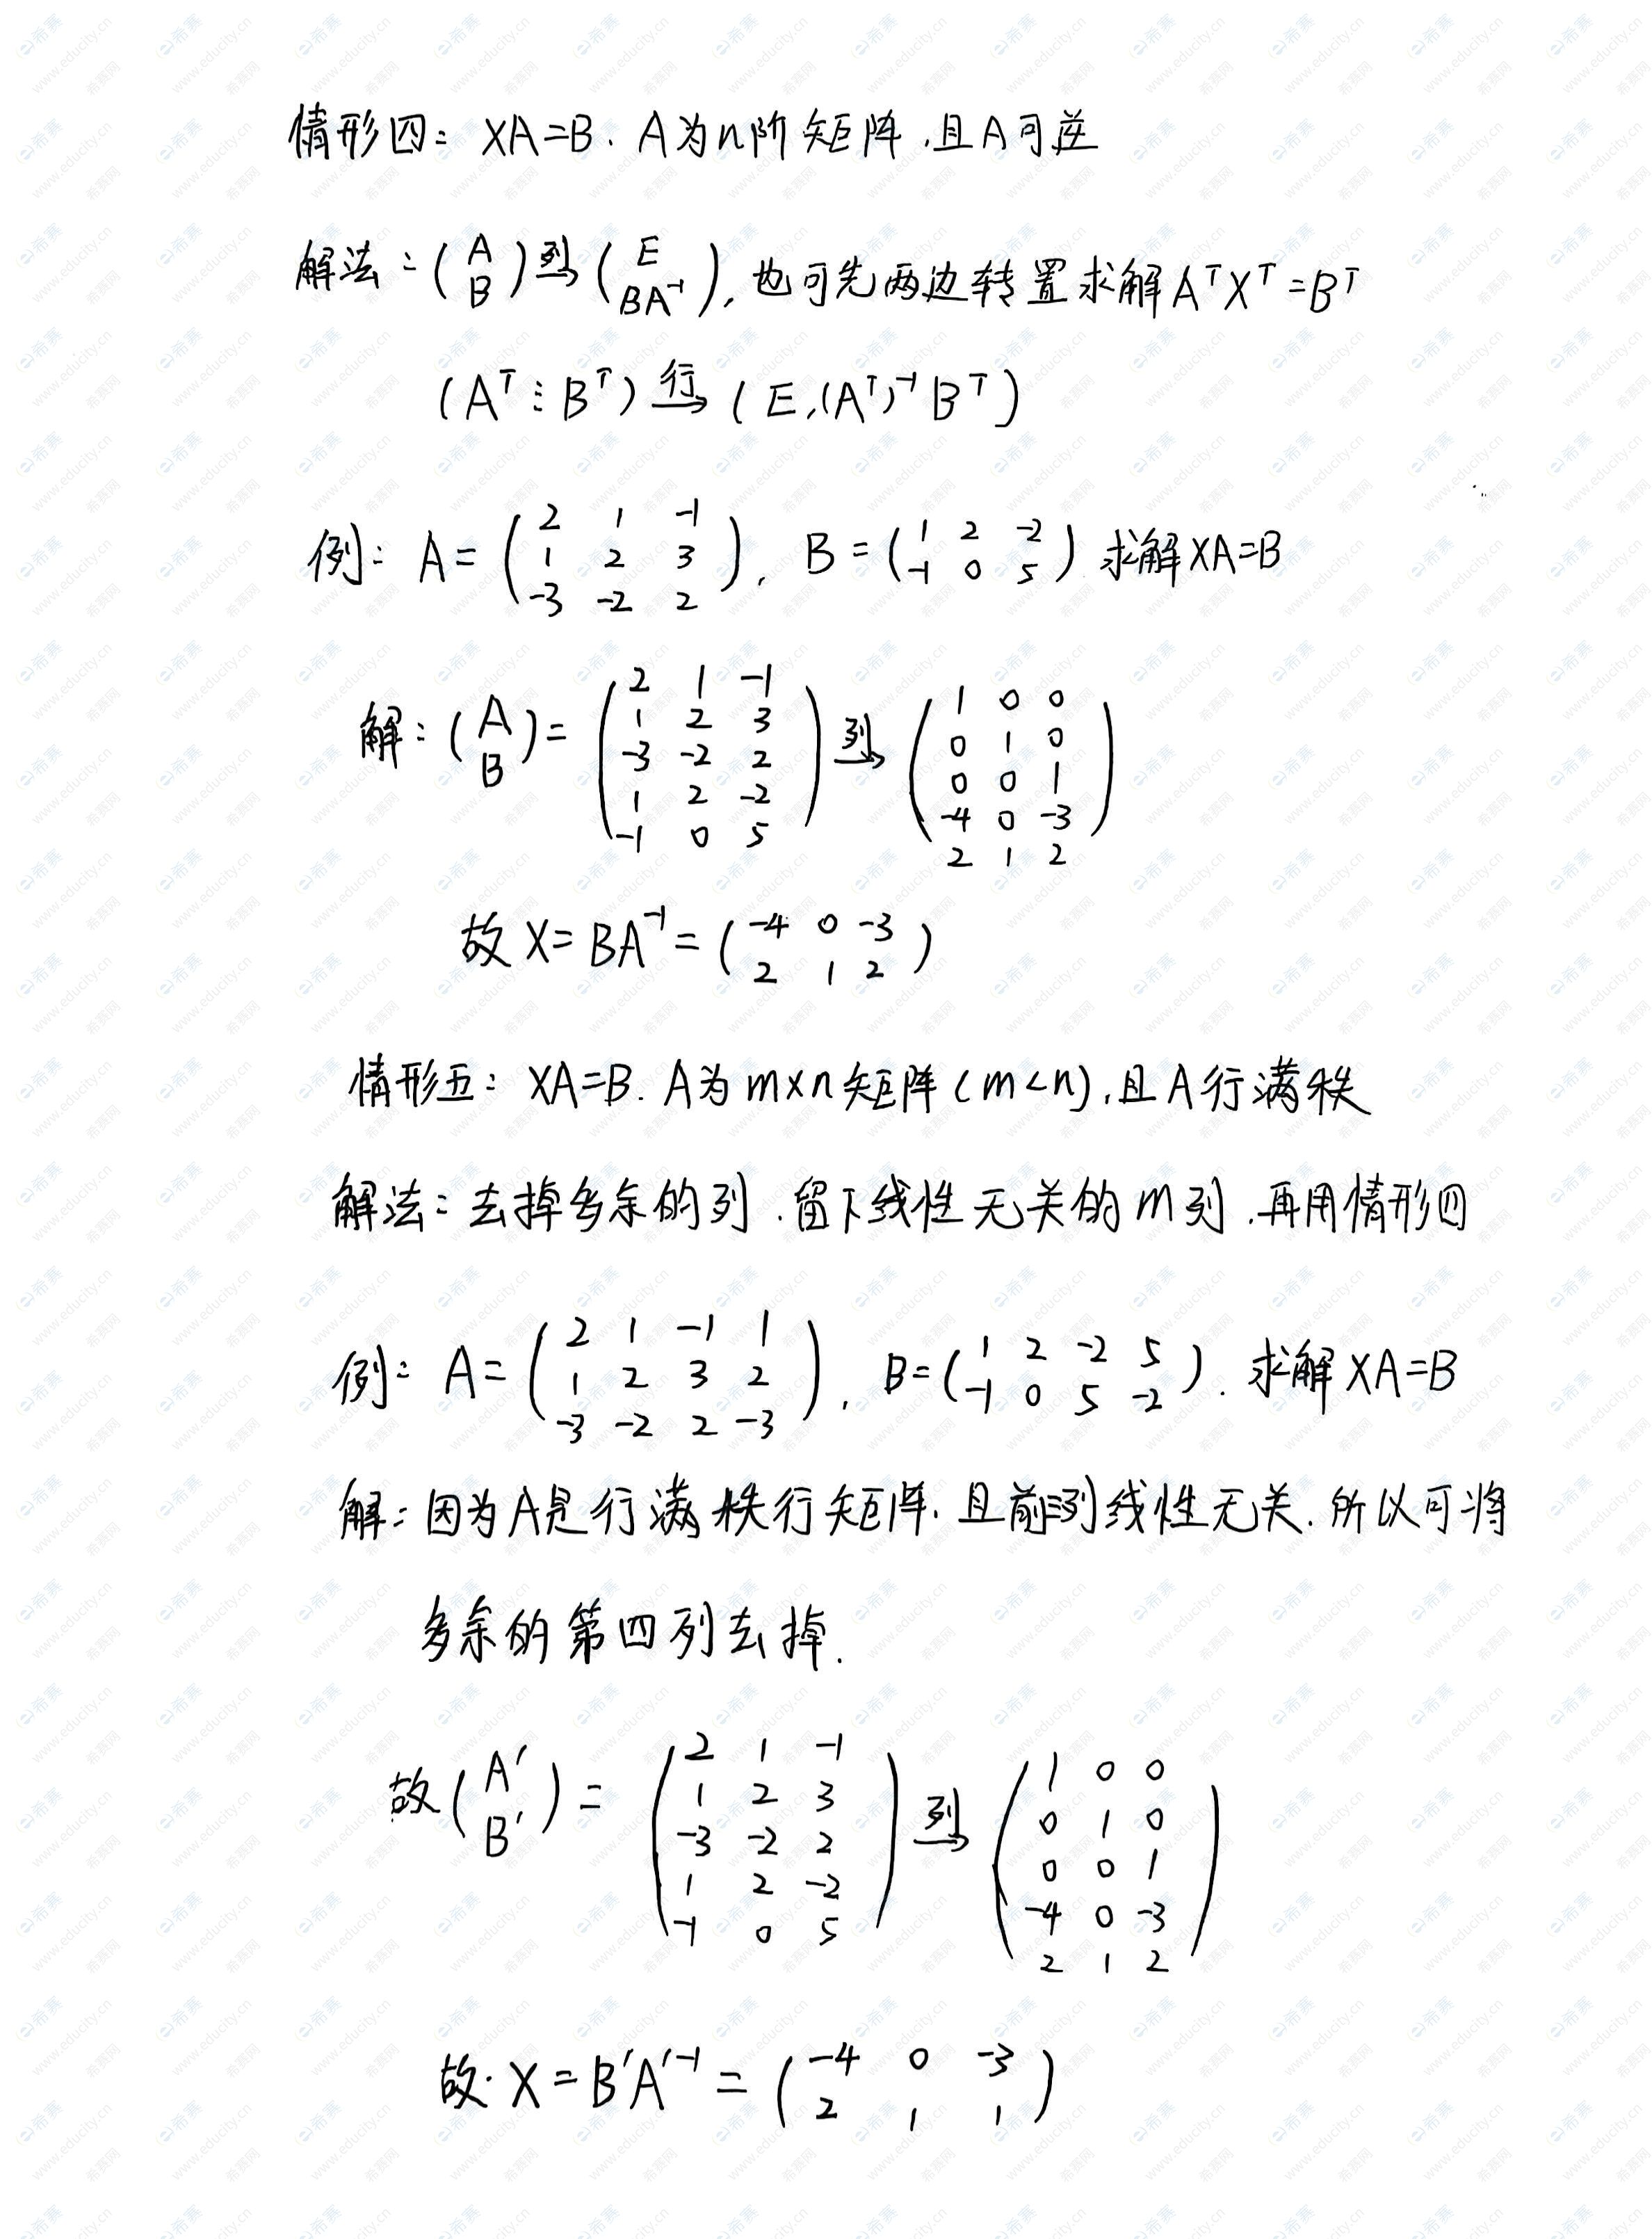 情形四：XA=B．A为n阶矩阵，且A可逆
解法：(A B) 列→ (E BA⁻¹)，也可先两边转置求解AᵀXᵀ=Bᵀ
(Aᵀ⋮Bᵀ) 行→ (E,(Aᵀ)⁻¹Bᵀ)
例：A= (2 1 -1
1 2 3
-3 -2 2)，B= (1 2 -2
-1 0 5) 求解XA=B
解：(A B)= (2 1 -1
1 2 3
-3 -2 2
1 2 -2
-1 0 5) 列→ (1 0 0
0 1 0
0 0 1
-4 0 -3
2 1 2)
故X=BA⁻¹= (-4 0 -3
2 1 2)
情形五：XA=B．A为m×n矩阵(m<n)，且A行满秩
解法：去掉多余的列．留下线性无关的m列．再用情形四
例：A= (2 1 -1 1
1 2 3 2
-3 -2 2 -3)，B= (1 2 -2 5
-1 0 5 -2)．求解XA=B
解：因为A是行满秩行矩阵．且前三列线性无关．所以可将
多余的第四列去掉．
故(A′ B′)= (2 1 -1
1 2 3
-3 -2 2
1 2 -2
-1 0 5) 列→ (1 0 0
0 1 0
0 0 1
-4 0 -3
2 1 2)
故．X=B′A′⁻¹= (-4 0 -3
2 1 1)
希赛
www.educity.cn
希赛网